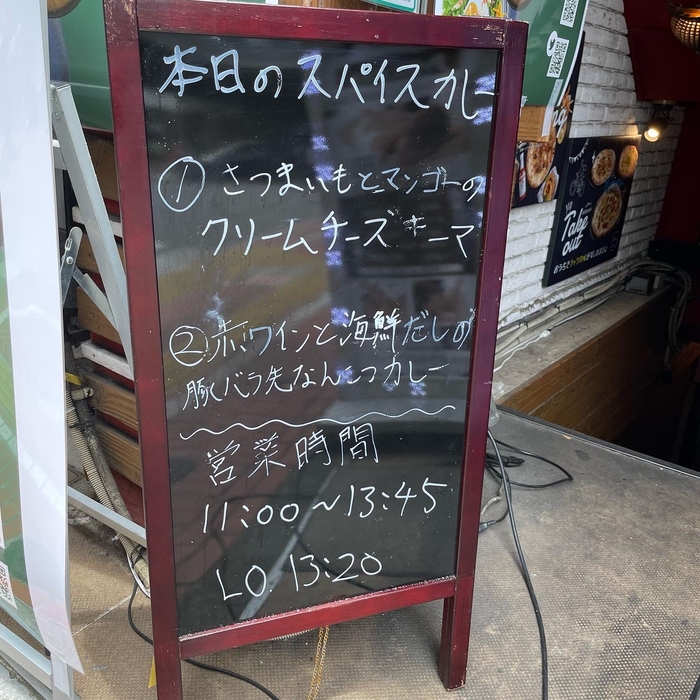 本日のスパイスカレー
① さつまいもとマンゴーの
クリームチーズキーマ
② 赤ワインと海鮮だしの
豚バラ先なんこつカレー
営業時間
11:00~13:45
LO. 13:20
Take
out